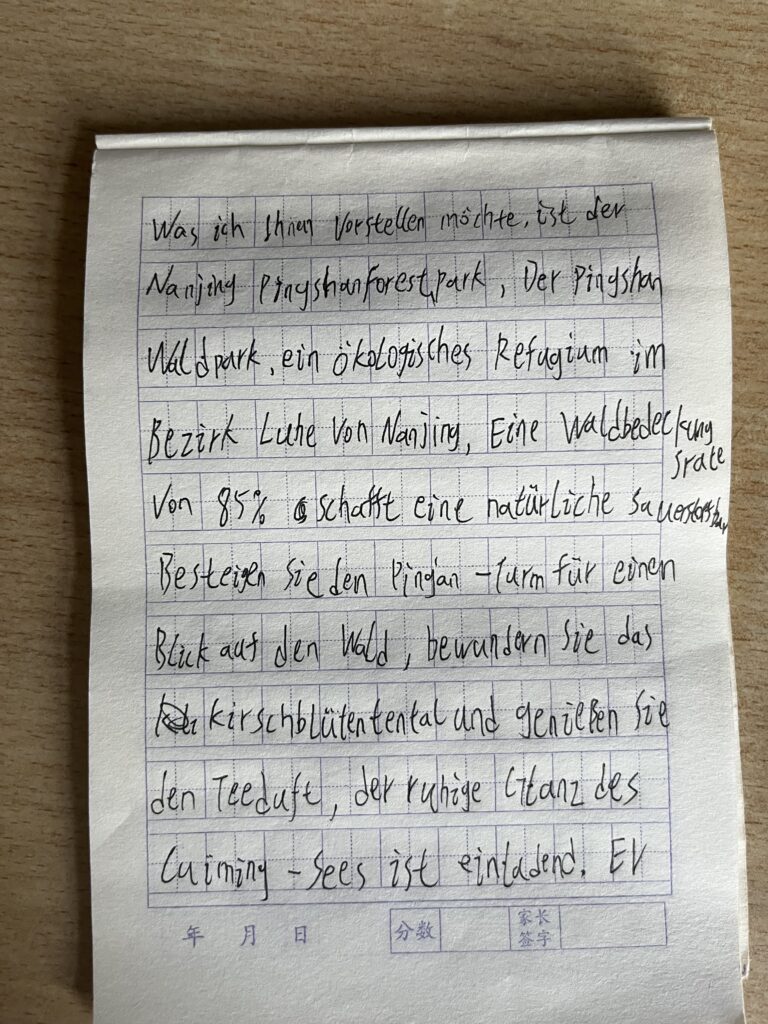 Was ich Ihnen vorstellen möchte, ist der
Nanjing Pingshanforestpark, Der Pingshan
Waldpark, ein ökologisches Refugium im
Bezirk Luhe von Nanjing, Eine Waldbedeckung
srate
von 85% schafft eine natürliche
Besteigen Sie den Ping'an-Turm für einen
Blick auf den Wald, bewundern Sie das
Kirschblütentental und genießen Sie
den Teeduft, der ruhige Glanz des
Cuiming-Sees ist einladend. Er
年 月 日 分数 家长
签字